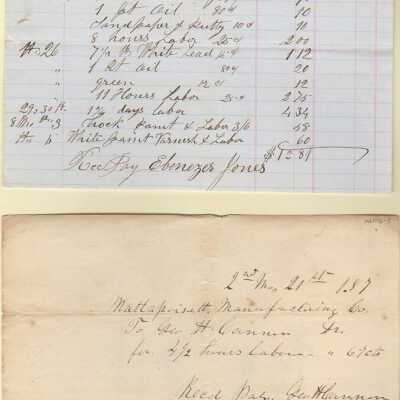 1 pt Oil 80¢ 10
Sand paper & Putty 10¢ 10
8 hours labor 25¢ 200
26 7½ lb White Lead 15¢ 112
" 1 Qt Oil 80¢ 20
" green 12¢ 12
" 11 Hours Labor 25¢ 275
29, 30 1¾ days labor 434
8 Mo 3 paint & Labor 3/6 58
5 White paint Varnish & Labor 60
Rec Pay Ebenezer Jones
2nd Mo, 21st 187
Mattapoisett, Manufacturing Co.
To Geo H Cannon Dr.
for 4½ hours Labour " 67cts
Recd Paby. Geo H Cannon